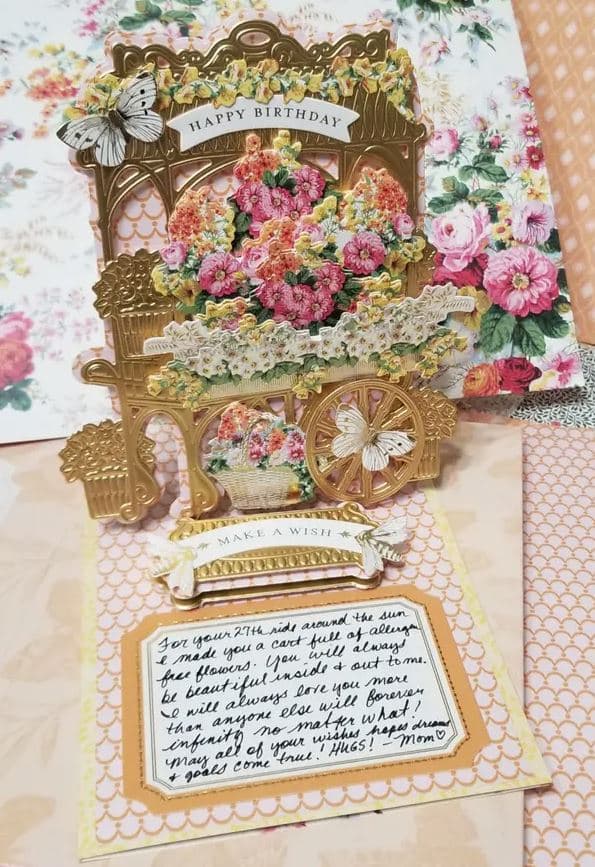 HAPPY BIRTHDAY
MAKE A WISH
For your 27th ride around the sun
I made you a cart full of allergen
free flowers. You will always
be beautiful inside & out to me.
I will always love you more
than anyone else will forever
infinity no matter what!
May all of your wishes hopes dreams
& goals come true! HUGS! - Mom♡